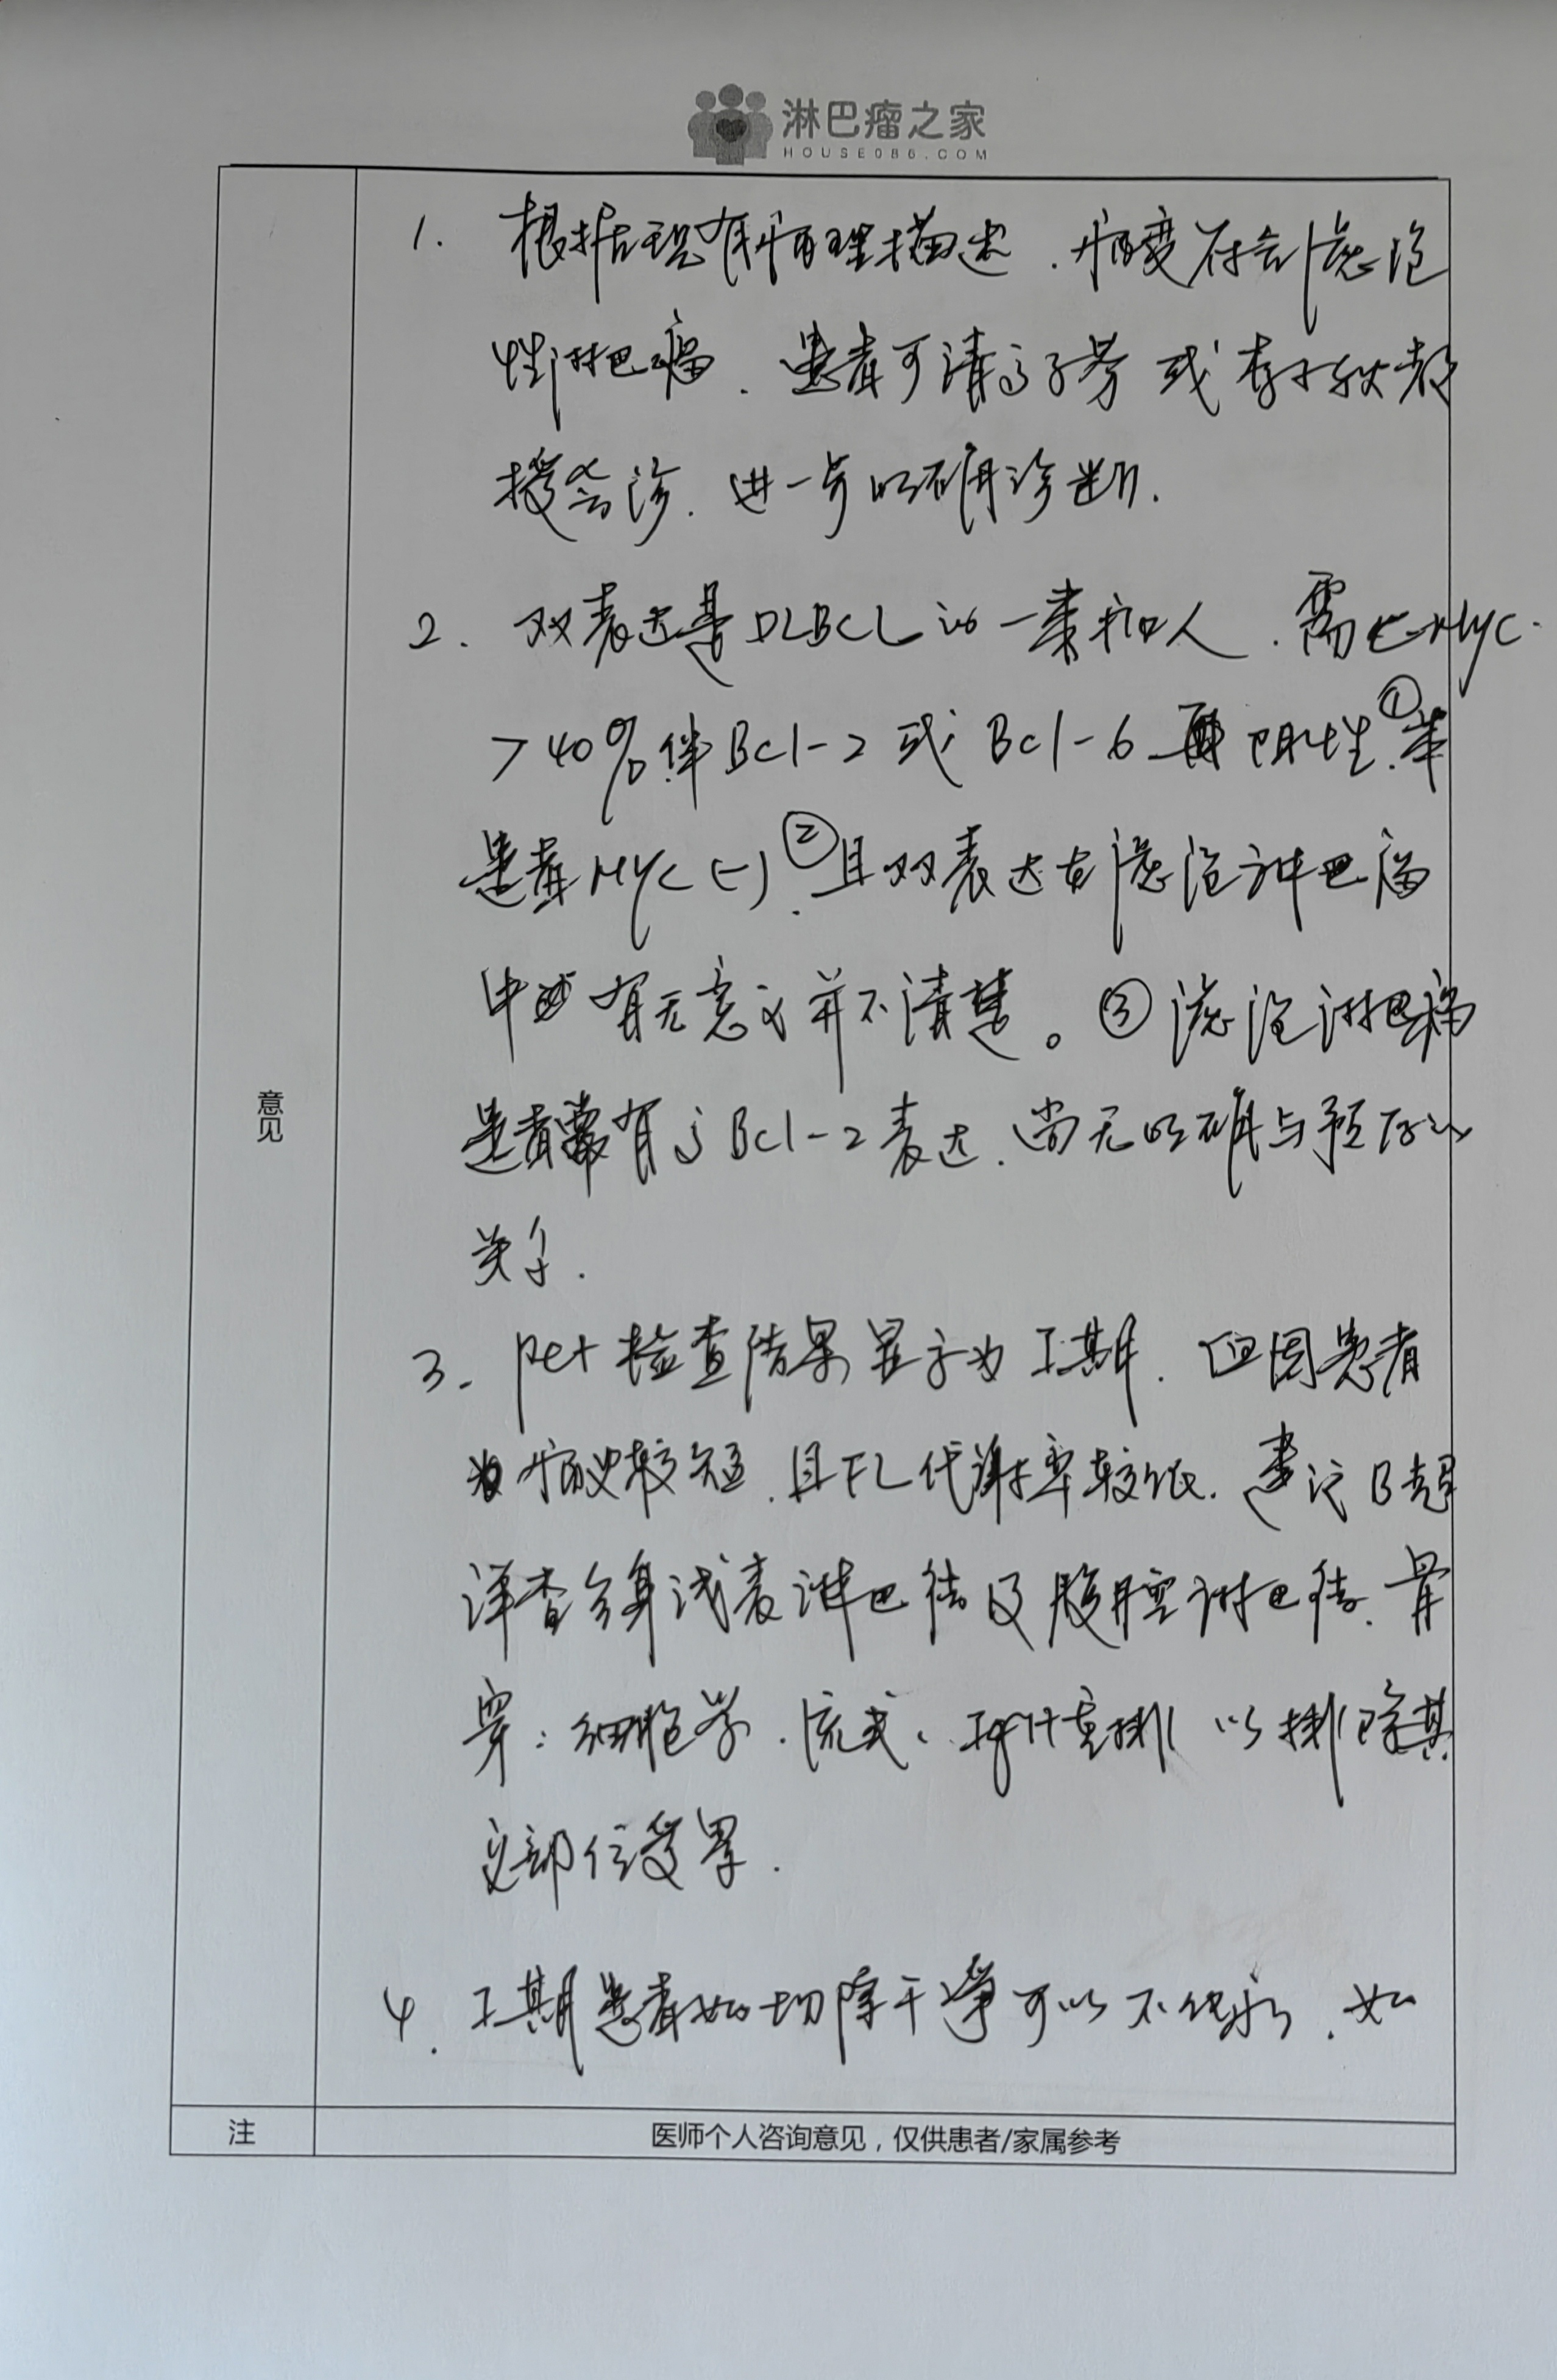 淋巴瘤之家
HOUSE086.COM
1. 根据现有病理描述，病变符合滤泡
性淋巴瘤，患者可请高子芬或李小秋教
授会诊，进一步明确诊断.
2. 双表达是DLBCL的一类病人，需MYC
>40%伴Bcl-2或Bcl-6阳性.①本
患者MYC(-).②且双表达在滤泡淋巴瘤
中有无意义并不清楚。③滤泡淋巴瘤
患者常有高Bcl-2表达，尚无明确与预后的
关系.
3. pet检查结果显示为I期，但因患者
病史较短，且FL代谢率较低，建议B超
详查全身浅表淋巴结及腹腔淋巴结，骨
穿：细胞学、流式、IgH重排以排除其
它部位受累.
意见
4. I期患者如切除干净可以不化疗，如
注
医师个人咨询意见，仅供患者/家属参考